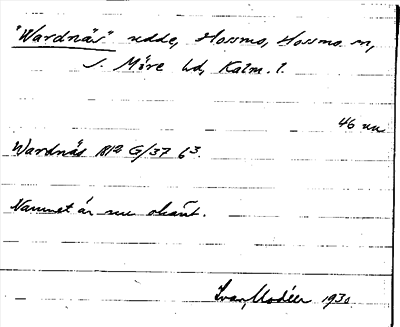 "Wardnäs" udde, Hossmo, Hossmo sn,
S. Möre hd, Kalm. l.
46 uu
Wardnäs B12 G/37 63
Namnet är nu okänt.
Ivar Modéer 1930